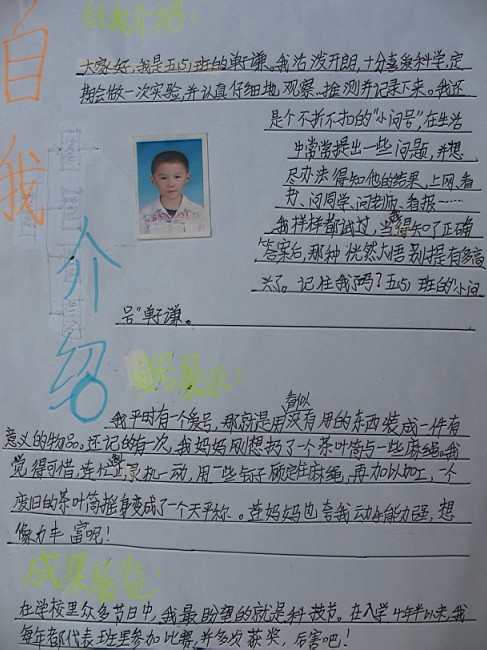 自我介绍
自我介绍:
大家好,我是五(5)班的单谦。我活泼开朗,十分喜爱科学,定
期会做一次实验,并认真仔细地观察、推测并记录下来。我还
是个不折不扣的“小问号”,在生活
中常常提出一些问题,并想
尽办法得知他的结果,上网、看
书、问同学、问老师、看报……
我样样都试过,当我得知了正确
答案后,那种恍然大悟别提有多高
兴了。记住我了吗?五(5)班的“小问
号”单谦。
展示:
我平时有一个爱好,那就是用看似没有用的东西装成一件有
意义的物品。还记的有一次,我妈妈刚想扔了一个茶叶筒与一些麻绳。我
觉得可惜,连忙灵机一动,用一些钉子固定住麻绳,再加以加工,一个
废旧的茶叶筒摇身变成了一个天平称。连妈妈也夸我动手能力强,想
像力丰富呢!
成果展览:
在学校里众多节日中,我最盼望的就是科技节。在入学4年半以来,我
每年都代表班里参加比赛,并多次获奖,厉害吧!